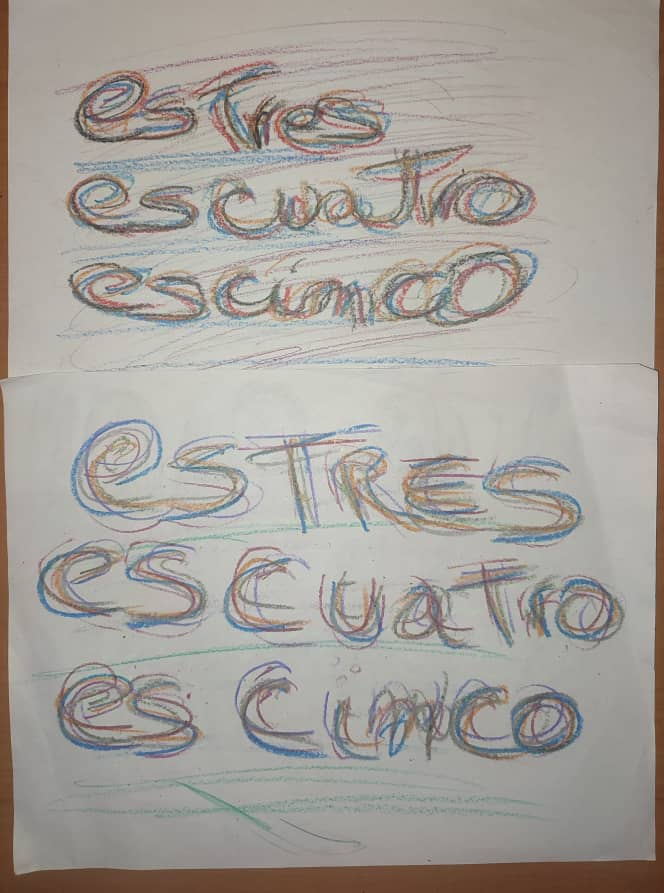 es Tres
es cuaTro
es cinco
es TRES
es CuaTro
es Cinco